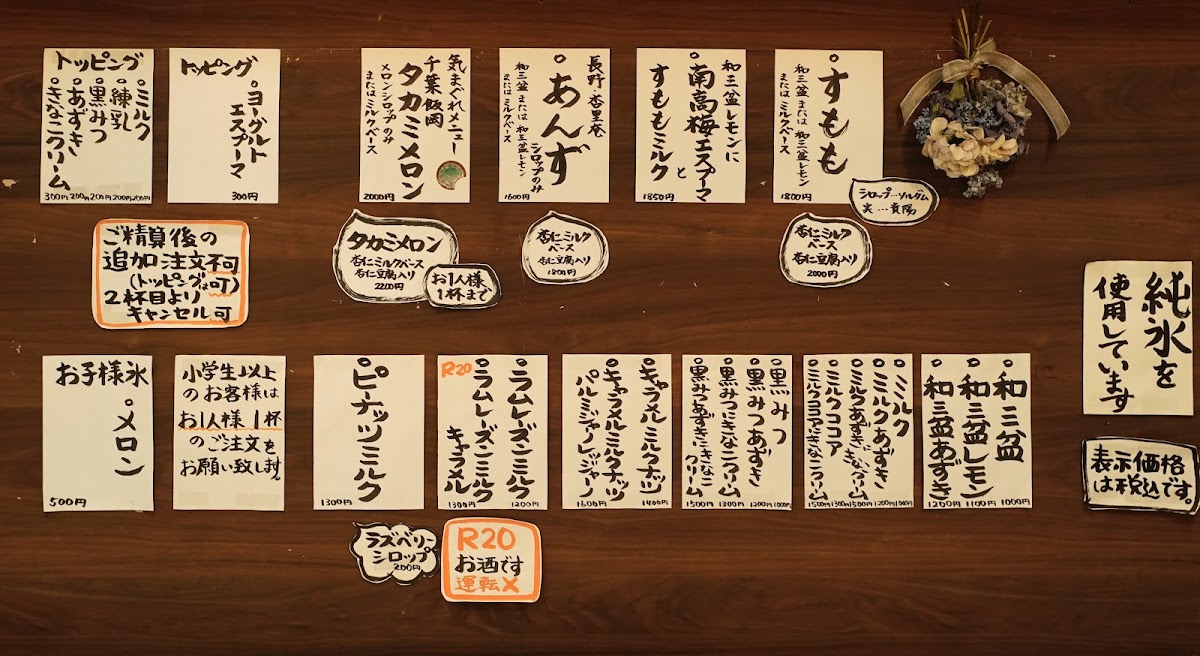 すもも
和三盆 または 和三盆レモン
またはミルクベース
1800円
シロップ…ソルダム
氷…貴陽
杏仁ミルク
ベース
杏仁豆腐入り
2000円
和三盆レモンに
南高梅エスプーマ
と
すももミルク
1850円
長野 杏里庵
あんず
シロップのみ
和三盆 または 和三盆レモン
またはミルクベース
1600円
杏仁ミルク
ベース
杏仁豆腐入り
1800円
気まぐれメニュー
千葉 飯岡
タカミメロン
メロンシロップのみ
またはミルクベース
2000円
タカミメロン
杏仁ミルクベース
杏仁豆腐入り
2200円
お1人様、
1杯まで
トッピング
ヨーグルト
エスプーマ
300円
トッピング
ミルク
練乳
黒みつ
あずき
きなこクリーム
300円 200円 200円 200円 200円
ご精算後の
追加注文不可
(トッピングは可)
2杯目より
キャンセル可
純氷を
使用しています
表示価格
は税込です。
和三盆
和三盆レモン
和三盆あずき
1200円 1100円 1000円
ミルク
ミルクあずき
ミルクあずききなこクリーム
ミルクココア
ミルクココアときなこクリーム
1500円 1300円 1500円 1200円 1000円
黒みつ
黒みつあずき
黒みつときなこクリーム
黒みつあずききなこクリーム
1500円 1300円 1200円 1000円
キャラメルミルクナッツ
キャラメルミルクナッツ
パルミジャーノレッジャーノ
1600円 1400円
R20
ラムレーズンミルク
ラムレーズンミルク
キャラメル
1300円 1200円
R20
お酒です
運転×
ピーナッツミルク
1300円
ラズベリー
シロップ
200円
小学生以上
のお客様は
お1人様 1杯
のご注文を
お願い致します。
お子様氷
メロン
500円